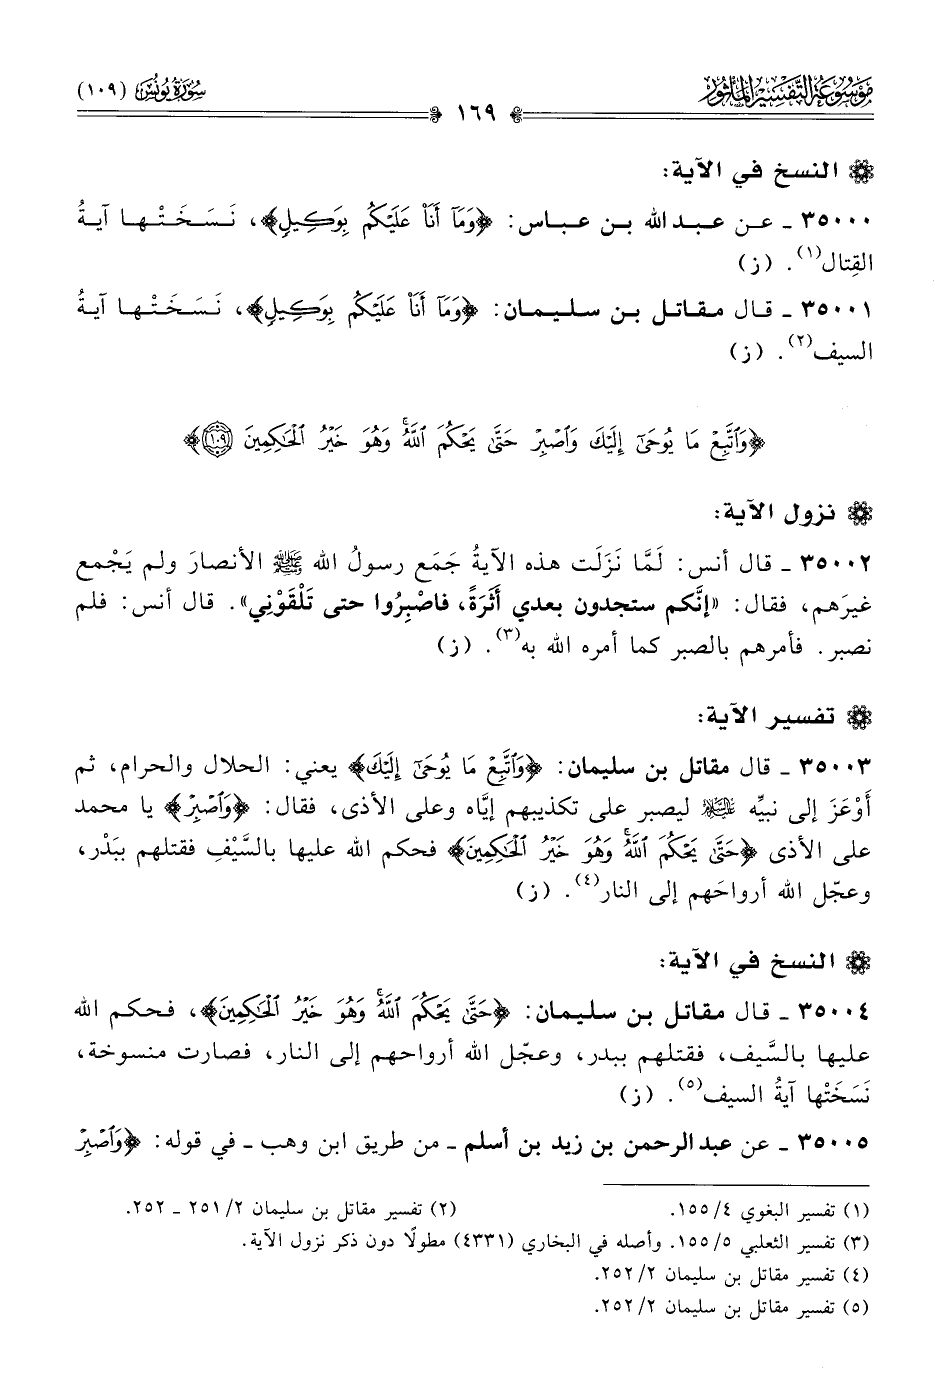 مَوْسُوعَة التَّفْسِير المَأْثُور
سُورَةُ يُونُسَ (١٠٩)
١٦٩
النسخ في الآية:
٣٥٠٠٠ ـ عـن عبـد الله بـن عبـاس: ﴿وَمَآ أَنَا۠ عَلَيْكُم بِوَكِيلٍ﴾، نَـسَـخَـتْـهـا آيـةُ
القِتال(١). (ز)
٣٥٠٠١ ـ قـال مقـاتـل بـن سـليـمـان: ﴿وَمَآ أَنَا۠ عَلَيْكُم بِوَكِيلٍ﴾، نَـسَـخَـتْـهـا آيـةُ
السيف(٢). (ز)
﴿وَٱتَّبِعْ مَا يُوحَىٰٓ إِلَيْكَ وَٱصْبِرْ حَتَّىٰ يَحْكُمَ ٱللَّهُ ۚ وَهُوَ خَيْرُ ٱلْحَٰكِمِينَ ١٠٩﴾
نزول الآية:
٣٥٠٠٢ ـ قال أنس: لَمَّا نَزَلَت هذه الآيةُ جَمَع رسولُ الله ﷺ الأنصارَ ولم يَجْمع
غيرَهم، فقال: «إنَّكم ستجدون بعدي أَثَرَةً، فاصْبِرُوا حتى تَلْقَوْنِي». قال أنس: فلم
نصبر. فأمرهم بالصبر كما أمره الله به(٣). (ز)
تفسير الآية:
٣٥٠٠٣ ـ قال مقاتل بن سليمان: ﴿وَٱتَّبِعْ مَا يُوحَىٰٓ إِلَيْكَ﴾ يعني: الحلال والحرام، ثم
أَوْعَزَ إلى نبيِّه ﷺ ليصبر على تكذيبهم إيَّاه وعلى الأذى، فقال: ﴿وَٱصْبِرْ﴾ يا محمد
على الأذى ﴿حَتَّىٰ يَحْكُمَ ٱللَّهُ ۚ وَهُوَ خَيْرُ ٱلْحَٰكِمِينَ﴾ فحكم الله عليها بالسَّيْفِ فقتلهم ببَدْر،
وعجّل الله أرواحَهم إلى النار(٤). (ز)
النسخ في الآية:
٣٥٠٠٤ ـ قال مقاتل بن سليمان: ﴿حَتَّىٰ يَحْكُمَ ٱللَّهُ ۚ وَهُوَ خَيْرُ ٱلْحَٰكِمِينَ﴾، فـحكم الله
عليها بالسَّيف، فقتلهم ببدر، وعجّل الله أرواحهم إلى النار، فصارت منسوخة،
نَسَخَتْها آيةُ السيف(٥). (ز)
٣٥٠٠٥ ـ عن عبد الرحمن بن زيد بن أسلم ـ من طريق ابن وهب ـ في قوله: ﴿وَٱصْبِرْ
(١) تفسير البغوي ٤/ ١٥٥.
(٢) تفسير مقاتل بن سليمان ٢/ ٢٥١ ـ ٢٥٢.
(٣) تفسير الثعلبي ٥/ ١٥٥. وأصله في البخاري (٤٣٣١) مطولًا دون ذكر نزول الآية.
(٤) تفسير مقاتل بن سليمان ٢/ ٢٥٢.
(٥) تفسير مقاتل بن سليمان ٢/ ٢٥٢.